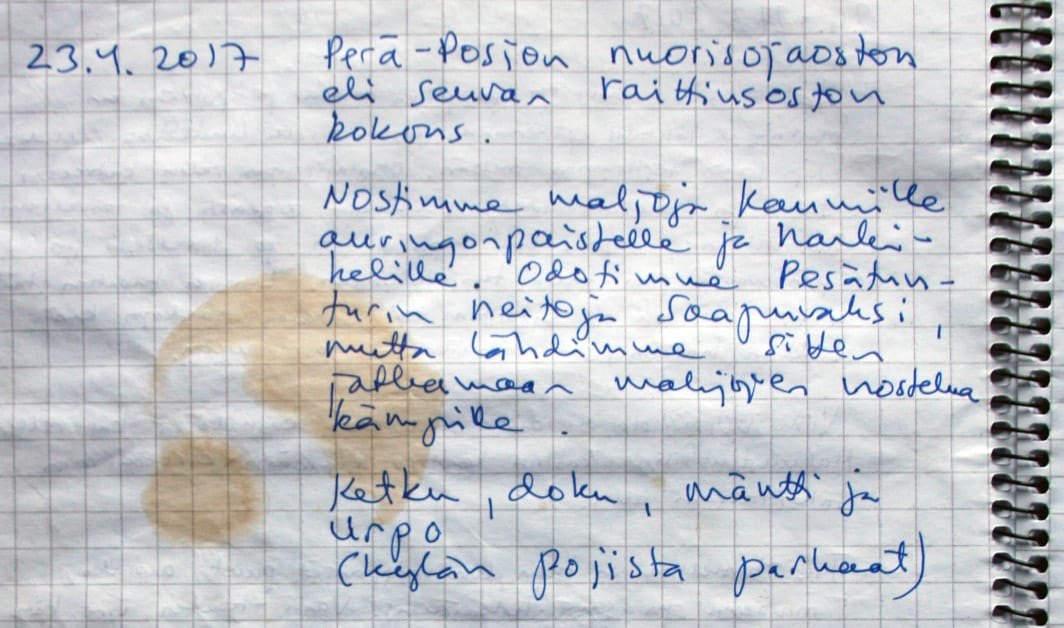 23.4.2017 Perä-Posion nuorisojaoston
eli seuran raittiusoston
kokous.
Nostimme maljoja kauniille
auringonpaistelle ja hanki-
kelille. Odotimme Pesätun-
turin neitoja saapuvaksi,
mutta lähdimme sitten
jatkamaan maljojen nostelua
kämpille.
Ketku, doku, mäntti ja
Urpo
(kylän pojista parhaat)